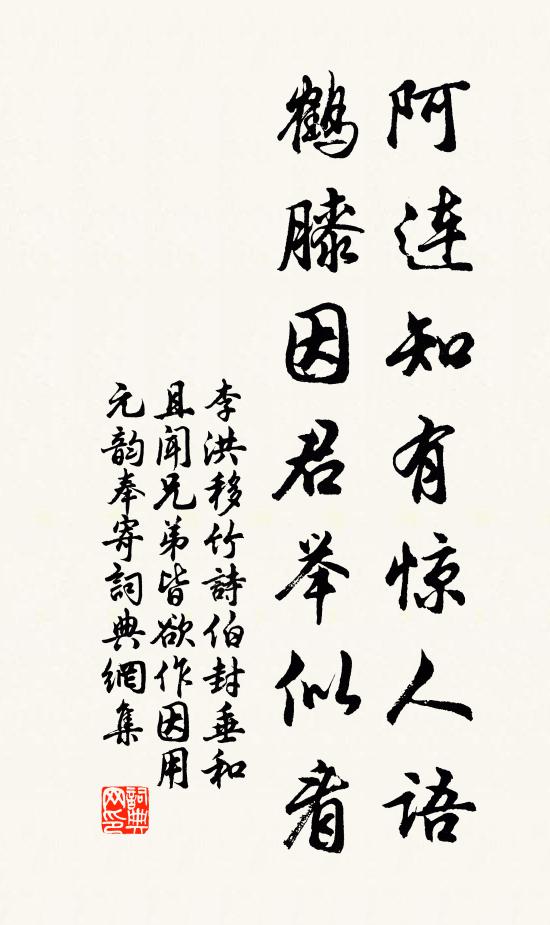 阿连知有惊人语
鹤膝因君举似看
李洪移竹詩伯封垂和
且闻兄弟皆欲作因用
元韵奉寄詞典網集
詞典
网印